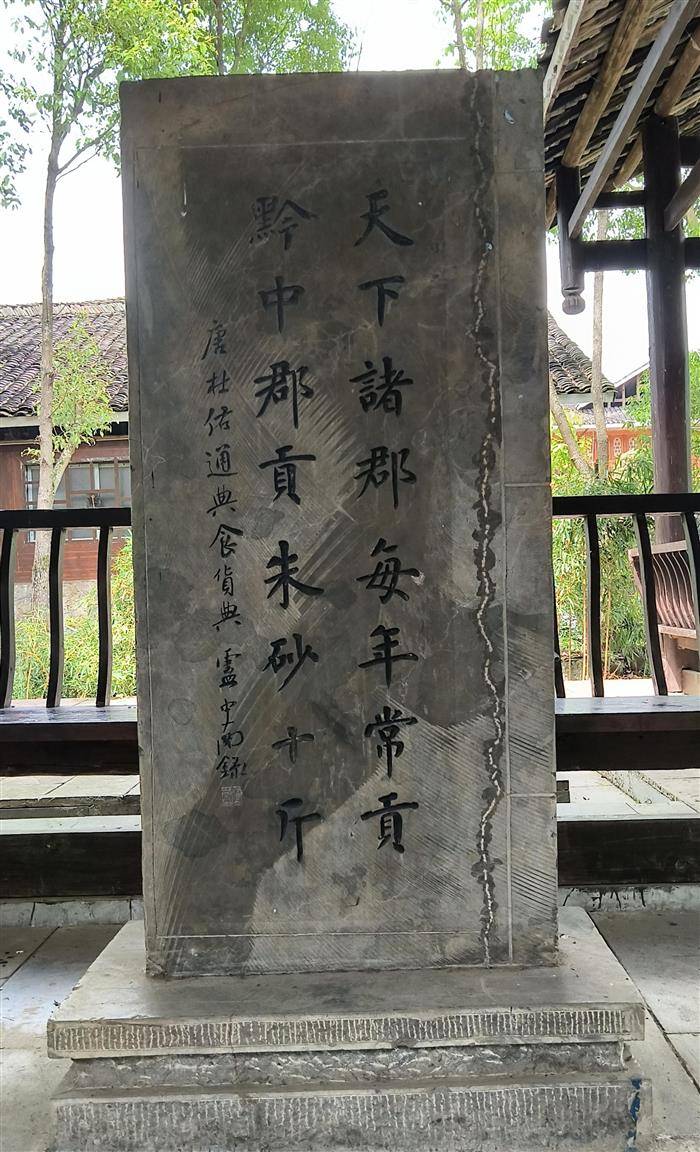 天下諸郡每年常貢
黔中郡貢朱砂十斤
唐杜佑通典食貨典 盧中南錄